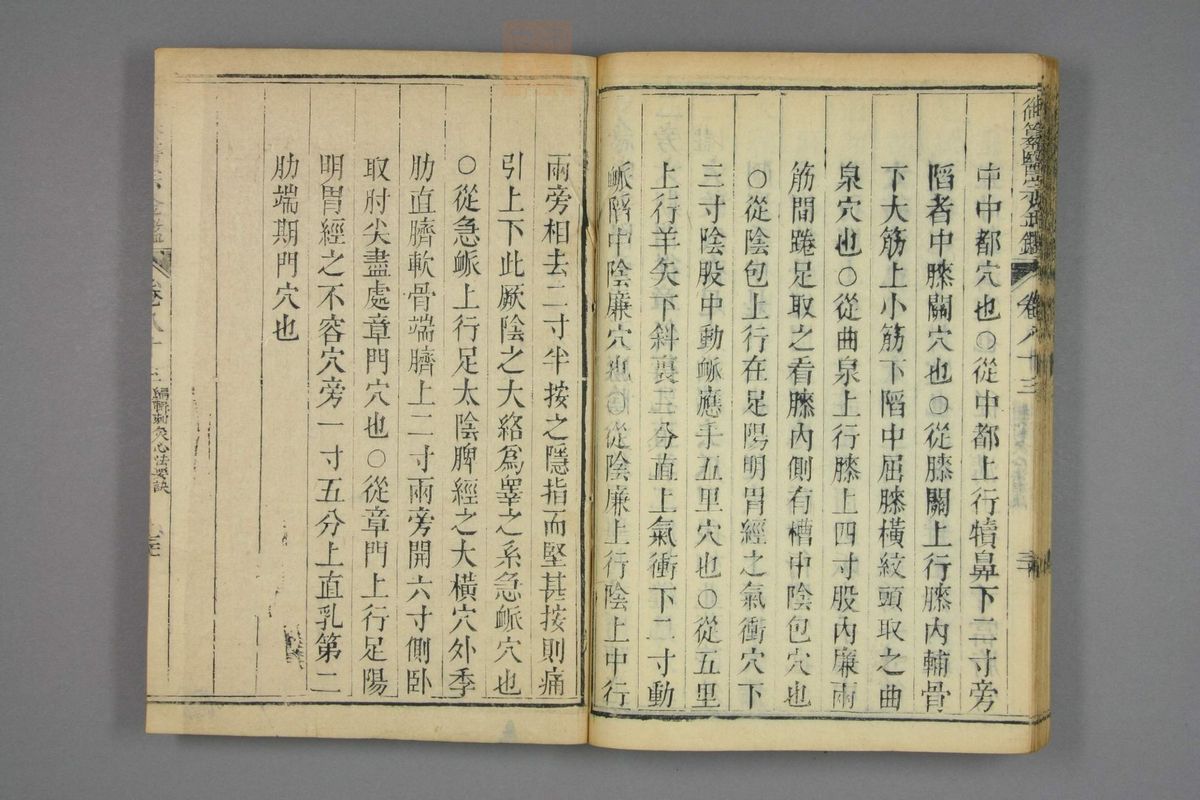 御纂醫宗金鑑 卷八十三
中中都穴也○從中都上行犢鼻下二寸旁
䧟者中膝關穴也○從膝關上行膝內輔骨
下大筋上小筋下䧟中屈膝橫紋頭取之曲
泉穴也○從曲泉上行膝上四寸股內廉兩
筋間踡足取之看膝內側有槽中陰包穴也
○從陰包上行在足陽明胃經之氣衝穴下
三寸陰股中動䘑應手五里穴也○從五里
上行羊矢下斜裏三分直上氣衝下二寸動
䘑䧟中陰廉穴也○從陰廉上行陰上中行
兩旁相去二寸半按之隱指而堅甚按則痛
引上下此厥陰之大絡為睪之系急䘑穴也
○從急䘑上行足太陰脾經之大橫穴外季
肋直臍軟骨端臍上二寸兩旁開六寸側卧
取肘尖盡處章門穴也○從章門上行足陽
明胃經之不容穴旁一寸五分上直乳第二
肋端期門穴也
金鑑 卷八十三 編輯刺灸心法要訣